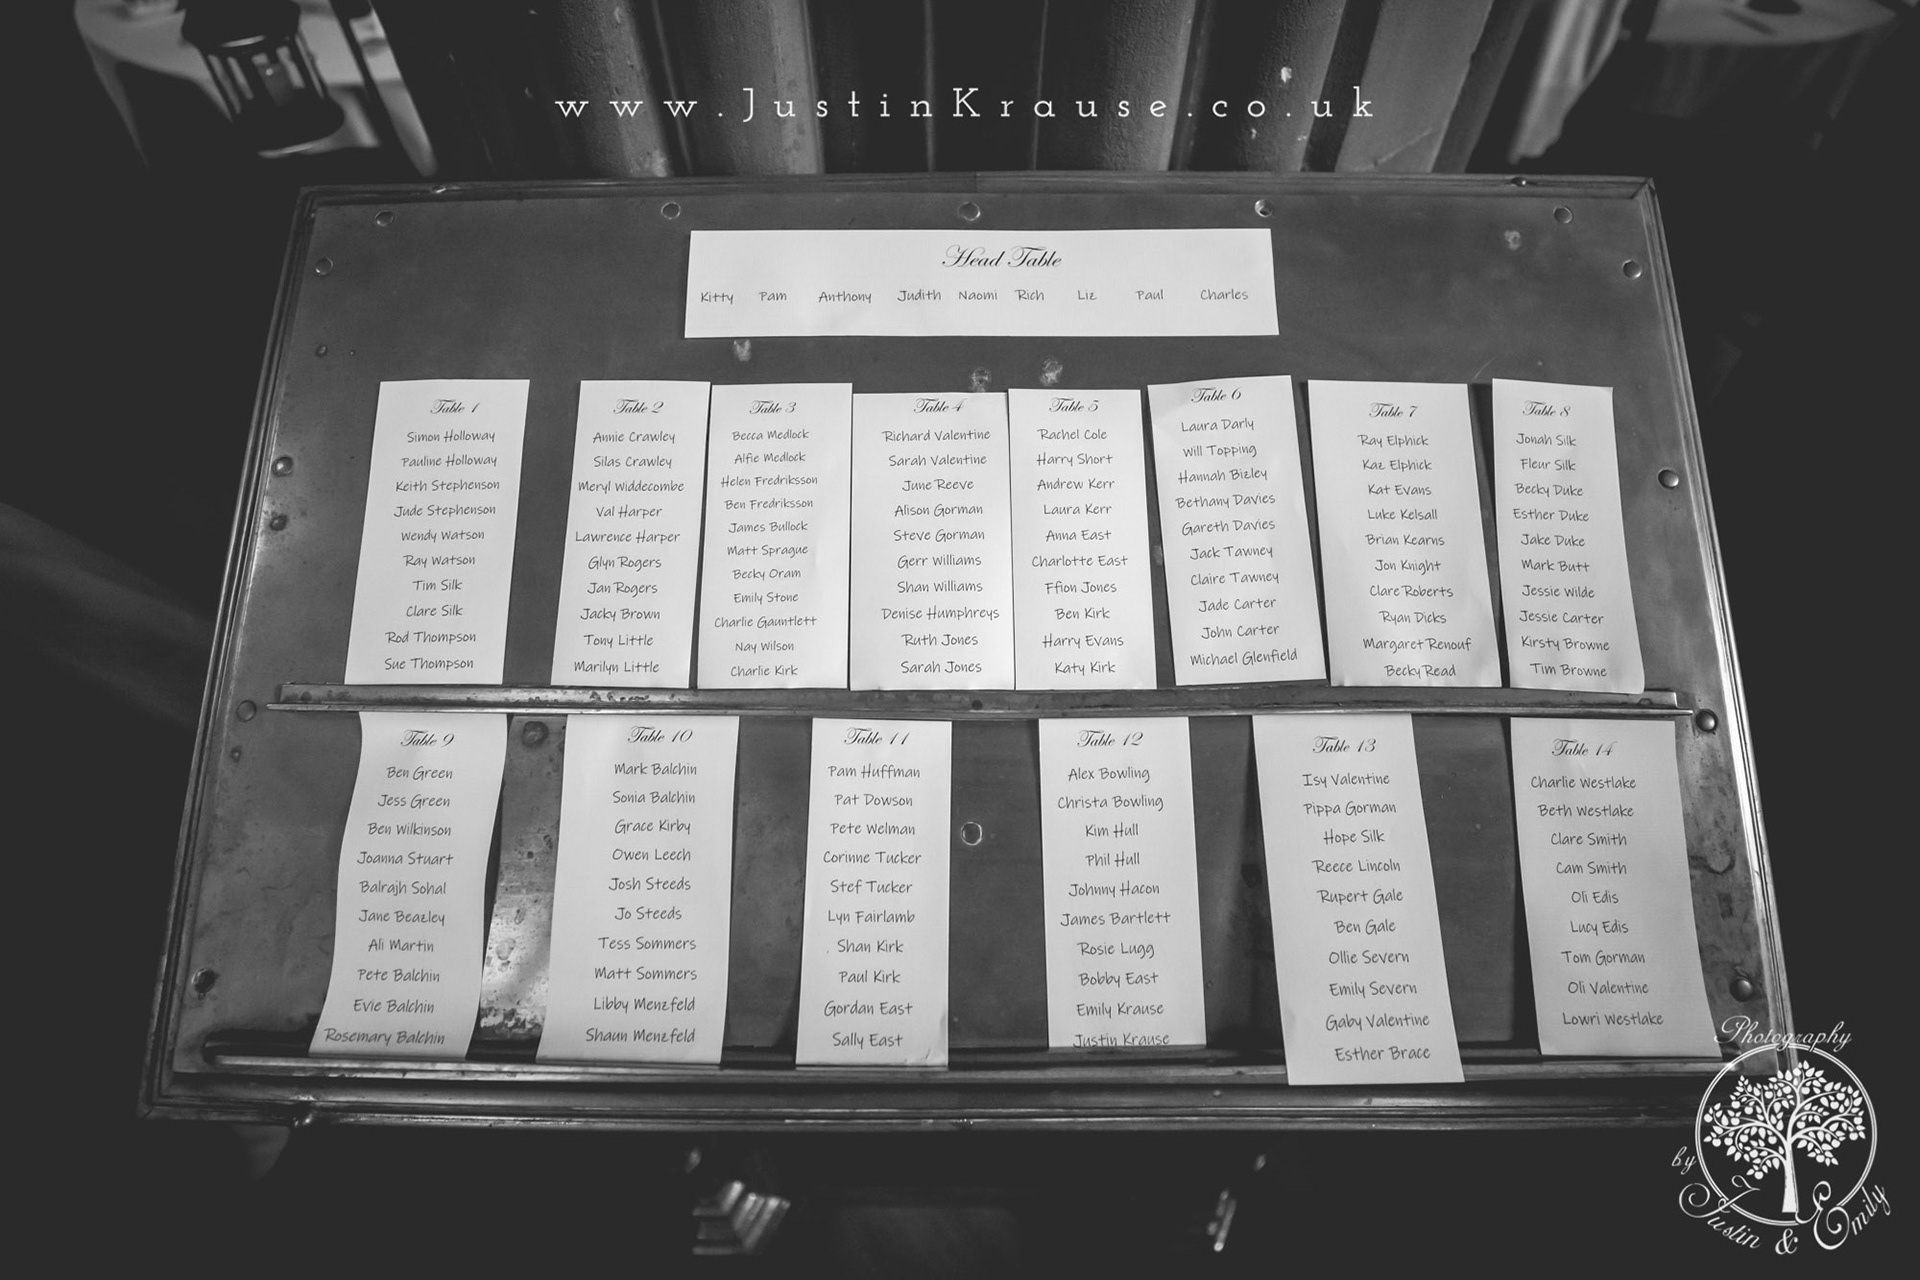 www.JustinKrause.co.uk
Head Table
Kitty Pam Anthony Judith Naomi Rich Liz Paul Charles
Table 1
Simon Holloway
Pauline Holloway
Keith Stephenson
Jude Stephenson
Wendy Watson
Ray Watson
Tim Silk
Clare Silk
Rod Thompson
Sue Thompson
Table 2
Annie Crawley
Silas Crawley
Meryl Widdecombe
Val Harper
Lawrence Harper
Glyn Rogers
Jan Rogers
Jacky Brown
Tony Little
Marilyn Little
Table 3
Becca Medlock
Alfie Medlock
Helen Fredriksson
Ben Fredriksson
James Bullock
Matt Sprague
Becky Oram
Emily Stone
Charlie Gauntlett
Nay Wilson
Charlie Kirk
Table 4
Richard Valentine
Sarah Valentine
June Reeve
Alison Gorman
Steve Gorman
Gerr Williams
Shan Williams
Denise Humphreys
Ruth Jones
Sarah Jones
Table 5
Rachel Cole
Harry Short
Andrew Kerr
Laura Kerr
Anna East
Charlotte East
Ffion Jones
Ben Kirk
Harry Evans
Katy Kirk
Table 6
Laura Darly
Will Topping
Hannah Bizley
Bethany Davies
Gareth Davies
Jack Tawney
Claire Tawney
Jade Carter
John Carter
Michael Glenfield
Table 7
Ray Elphick
Kaz Elphick
Kat Evans
Luke Kelsall
Brian Kearns
Jon Knight
Clare Roberts
Ryan Dicks
Margaret Renouf
Becky Read
Table 8
Jonah Silk
Fleur Silk
Becky Duke
Esther Duke
Jake Duke
Mark Butt
Jessie Wilde
Jessie Carter
Kirsty Browne
Tim Browne
Table 9
Ben Green
Jess Green
Ben Wilkinson
Joanna Stuart
Balrajh Sohal
Jane Beazley
Ali Martin
Pete Balchin
Evie Balchin
Rosemary Balchin
Table 10
Mark Balchin
Sonia Balchin
Grace Kirby
Owen Leech
Josh Steeds
Jo Steeds
Tess Sommers
Matt Sommers
Libby Menzfeld
Shaun Menzfeld
Table 11
Pam Huffman
Pat Dowson
Pete Welman
Corinne Tucker
Stef Tucker
Lyn Fairlamb
Shan Kirk
Paul Kirk
Gordan East
Sally East
Table 12
Alex Bowling
Christa Bowling
Kim Hull
Phil Hull
Johnny Hacon
James Bartlett
Rosie Lugg
Bobby East
Emily Krause
Justin Krause
Table 13
Isy Valentine
Pippa Gorman
Hope Silk
Reece Lincoln
Rupert Gale
Ben Gale
Ollie Severn
Emily Severn
Gaby Valentine
Esther Brace
Table 14
Charlie Westlake
Beth Westlake
Clare Smith
Cam Smith
Oli Edis
Lucy Edis
Tom Gorman
Oli Valentine
Lowri Westlake
Photography
by
Justin & Emily